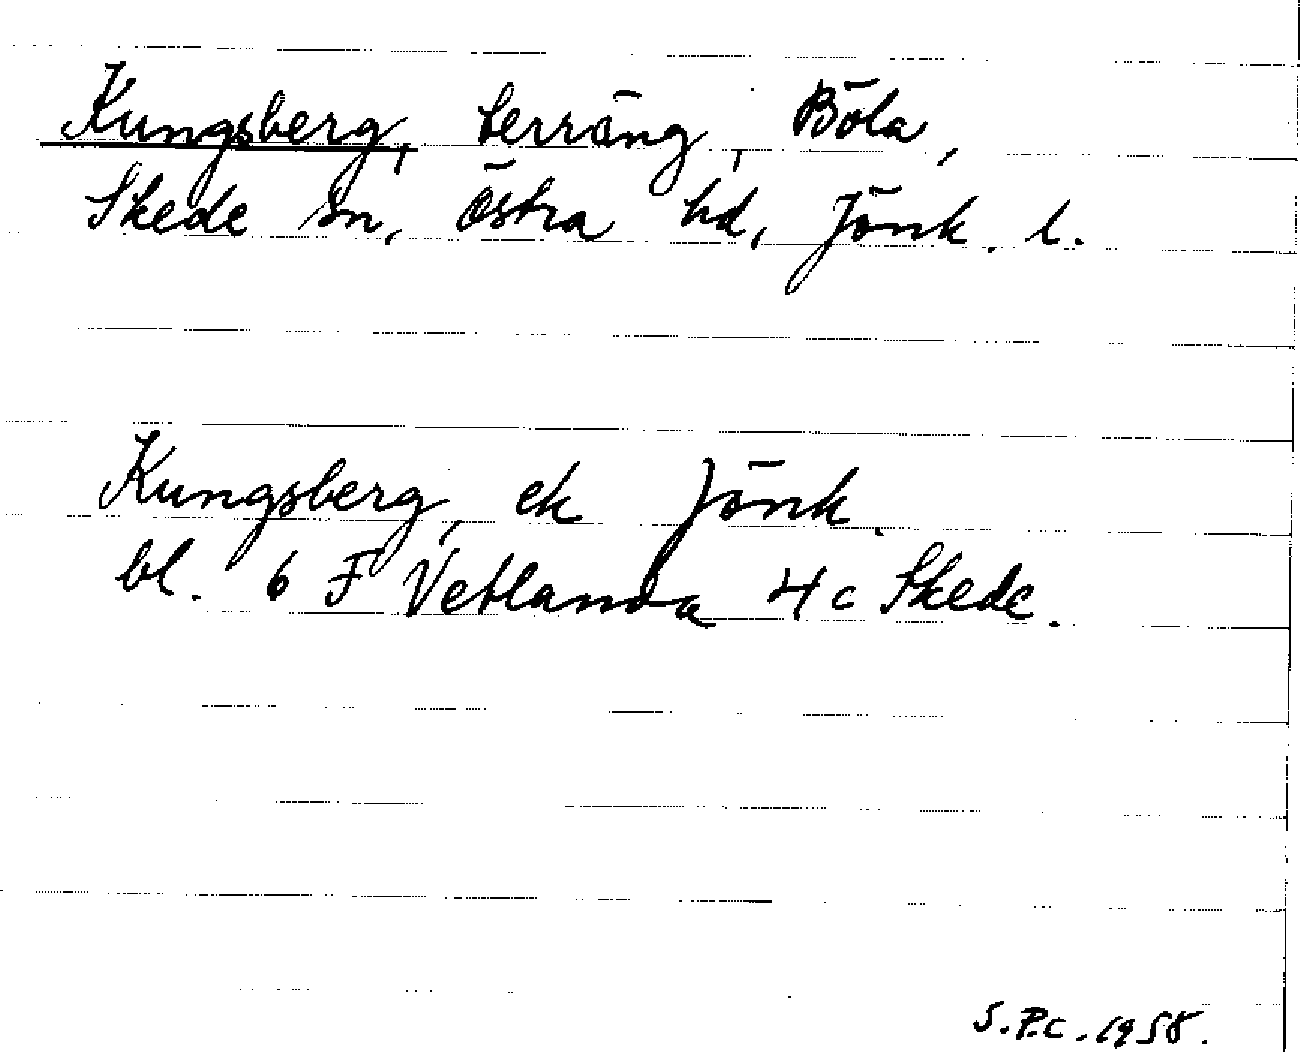 Kungsberg, terräng, Böla,
Skede sn, Östra hd, Jönk. l.
Kungsberg, ek Jönk.
bl. 6 F Vetlanda 4c Skede.
S.P.C. 1958.